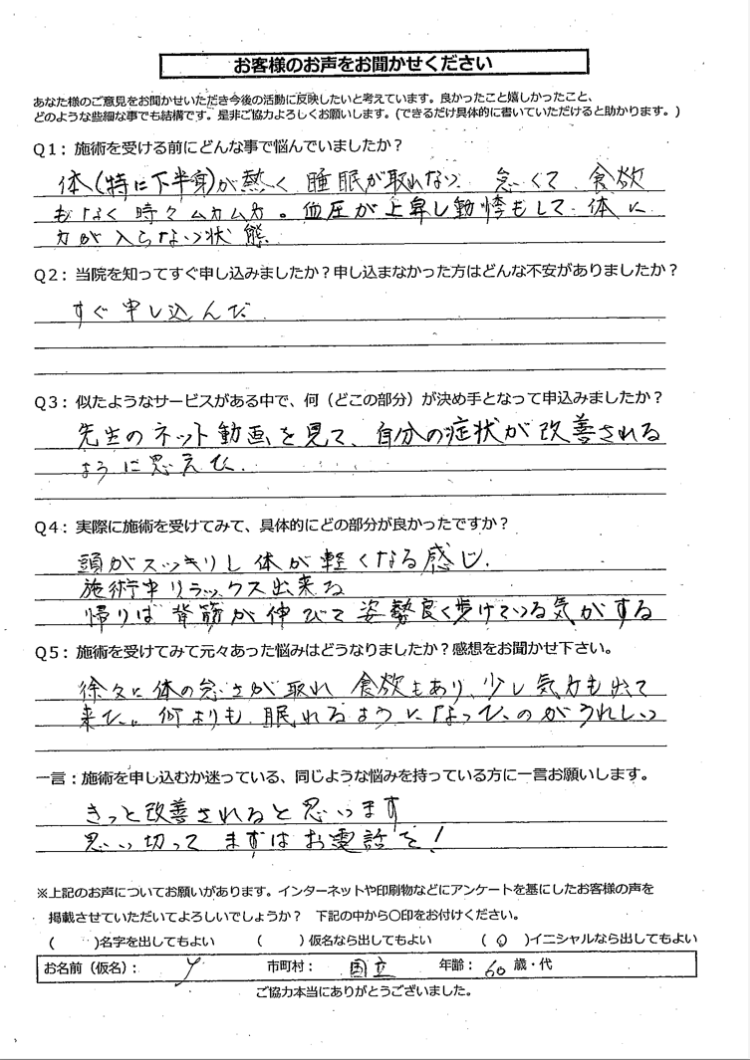 お客様のお声をお聞かせください
あなた様のご意見をお聞かせいただき今後の活動に反映したいと考えています。良かったこと嬉しかったこと、
どのような些細な事でも結構です。是非ご協力よろしくお願いします。(できるだけ具体的に書いていただけると助かります。)
Q1：施術を受ける前にどんな事で悩んでいましたか？
体(特に下半身)が熱く 睡眠が取れない 怠くて 食欲
もなく 時々ムカムカ。血圧が上昇し動悸もして 体に
力が入らない状態
Q2：当院を知ってすぐ申し込みましたか？申し込まなかった方はどんな不安がありましたか？
すぐ申し込んだ
Q3：似たようなサービスがある中で、何（どこの部分）が決め手となって申込みましたか？
先生のネット動画を見て、自分の症状が改善される
ように思えた.
Q4：実際に施術を受けてみて、具体的にどの部分が良かったですか？
頭がスッキリし体が軽くなる感じ.
施術中リラックス出来る
帰りは背筋が伸びて姿勢良く歩けている気がする
Q5：施術を受けてみて元々あった悩みはどうなりましたか？感想をお聞かせ下さい。
徐々に体の怠さが取れ 食欲もあり、少し気力も出て
来た。何よりも 眠れるようになったのがうれしい
一言：施術を申し込むか迷っている、同じような悩みを持っている方に一言お願いします。
きっと改善されると思います
思い切って まずはお電話を！
※上記のお声についてお願いがあります。インターネットや印刷物などにアンケートを基にしたお客様の声を
掲載させていただいてよろしいでしょうか？ 下記の中から〇印をお付けください。
(　　)名字を出してもよい (　　)仮名なら出してもよい ( 〇 )イニシャルなら出してもよい
お名前（仮名）： Y 市町村： 国立 年齢： 60 歳・代
ご協力本当にありがとうございました。